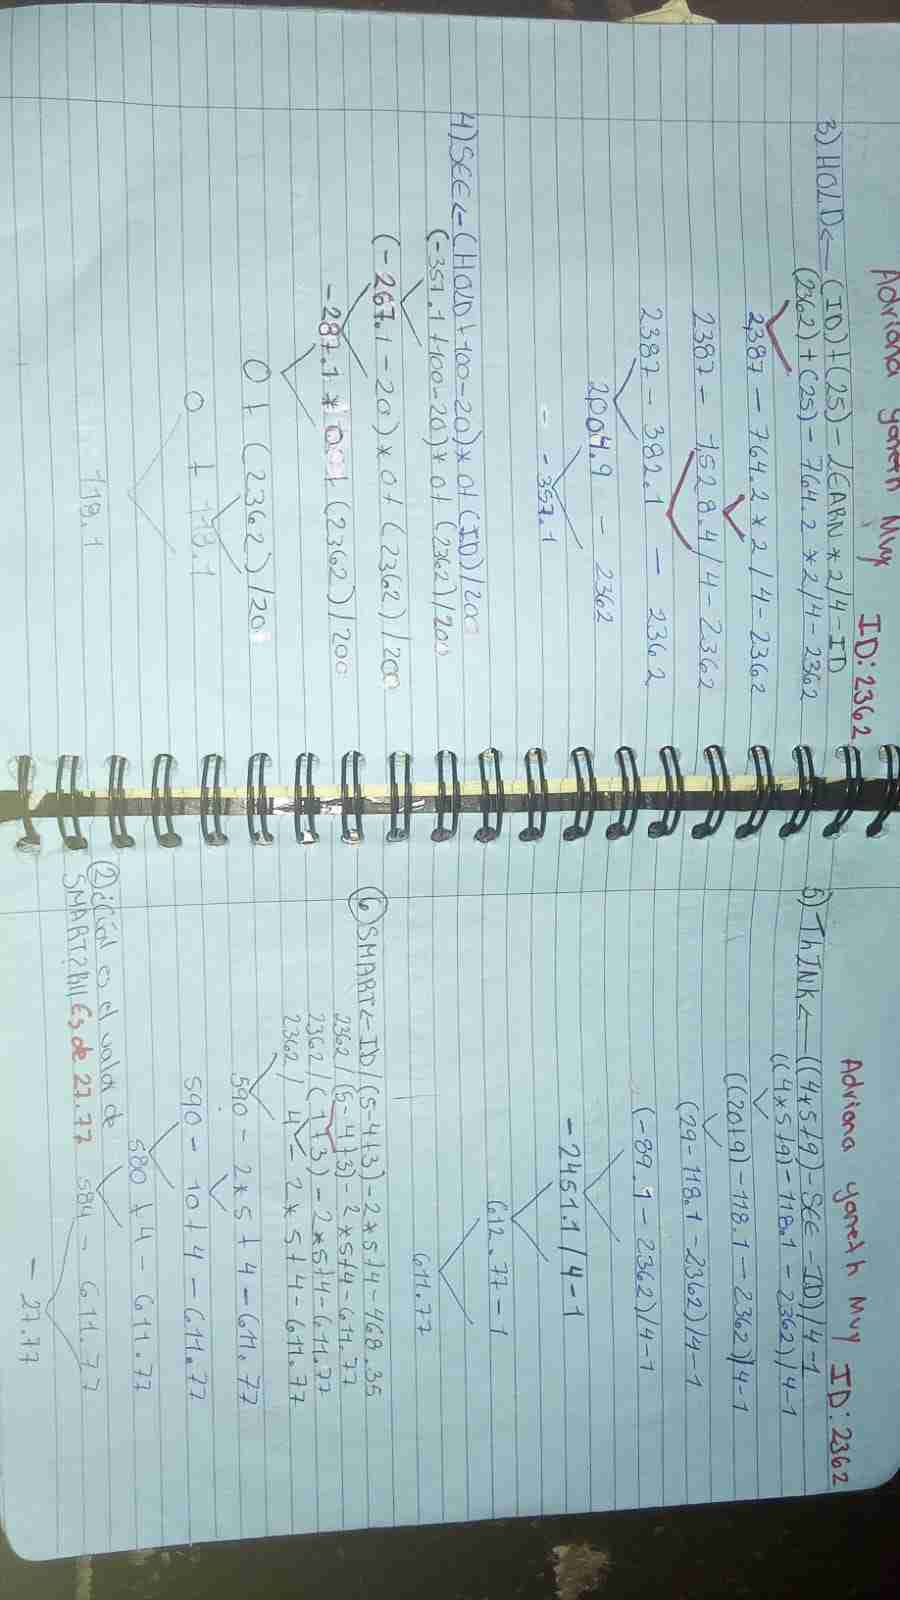 Adriona yaneth Muy ID: 2362
3) HOLD← (ID)+(25)-LEARN*2/4-ID
(2362)+(25)-764.2*2/4-2362
2387-764.2*2/4-2362
2387-1528.4/4-2362
2387-382.1-2362
2004.9-2362
- -357.1
4) SEE←(HOLD+100-20)*0+(ID)/200
(-357.1+100-20)*0+(2362)/200
(-267.1-20)*0+(2362)/200
-287.1*0+(2362)/200
0+(2362)/20
0+118.1
118.1
Adriona yaneth Muy ID: 2362
5) ThINK←((4*5+9)-SEE-ID)/4-1
((4*5+9)-118.1-2362)/4-1
((20+9)-118.1-2362)/4-1
(29-118.1-2362)/4-1
(-89.1-2362)/4-1
-2451.1/4-1
612.77-1
611.77
6) SMART←ID/(5-4+3)-2*5+4-468.35
2362/(5-4+3)-2*5+4-611.77
2362/(1+3)-2*5+4-611.77
2362/4-2*5+4-611.77
590-2*5+4-611.77
590-10+4-611.77
580+4-611.77
584-611.77
-27.77
2 ¿Cuál es el valor de
SMART? R// Es de 27.77